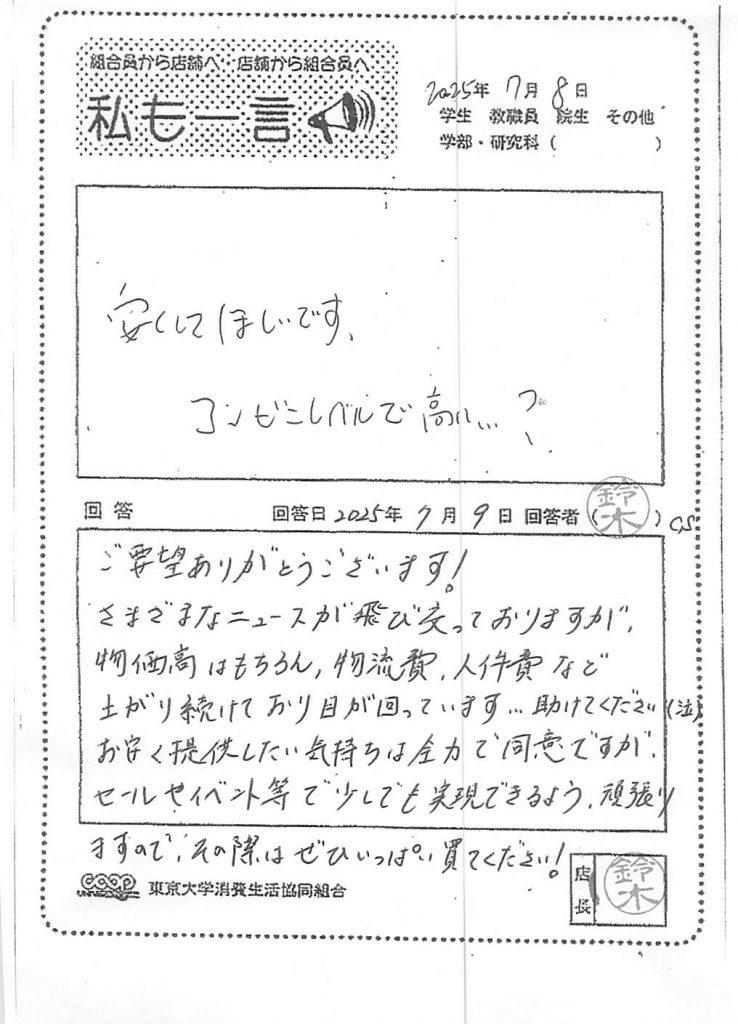 組合員から店舗へ 店舗から組合員へ
私も一言
2025年 7月 8日
学生 教職員 院生 その他
学部・研究科 ( )
安くしてほしいです、
コンビニレベルで高い…?
回答 回答日 2025年 7月 9日 回答者 (鈴木) CS
ご要望ありがとうございます!
さまざまなニュースが飛び交っておりますが、
物価高はもちろん、物流費、人件費など
上がり続けており目が回っています… 助けてください(泣)
お安く提供したい気持ちは全力で同意ですが、
セールやイベント等で少しでも実現できるよう、頑張り
ますので、その際はぜひいっぱい買てください!
coop 東京大学消費生活協同組合
店長 鈴木